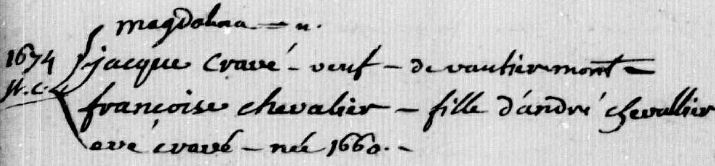 magdolna — n.
1674 jacque Cravé - veuf - de vautiermont -
françoise chevalier - fille d'andré chevallier
eve cravé - née 1660. -